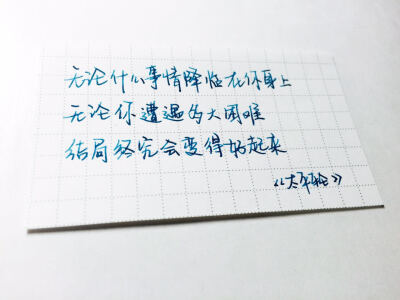 无论什么事情降临在你身上
无论你遭遇多大困难
结局终究会变得好起来
《太平轮》